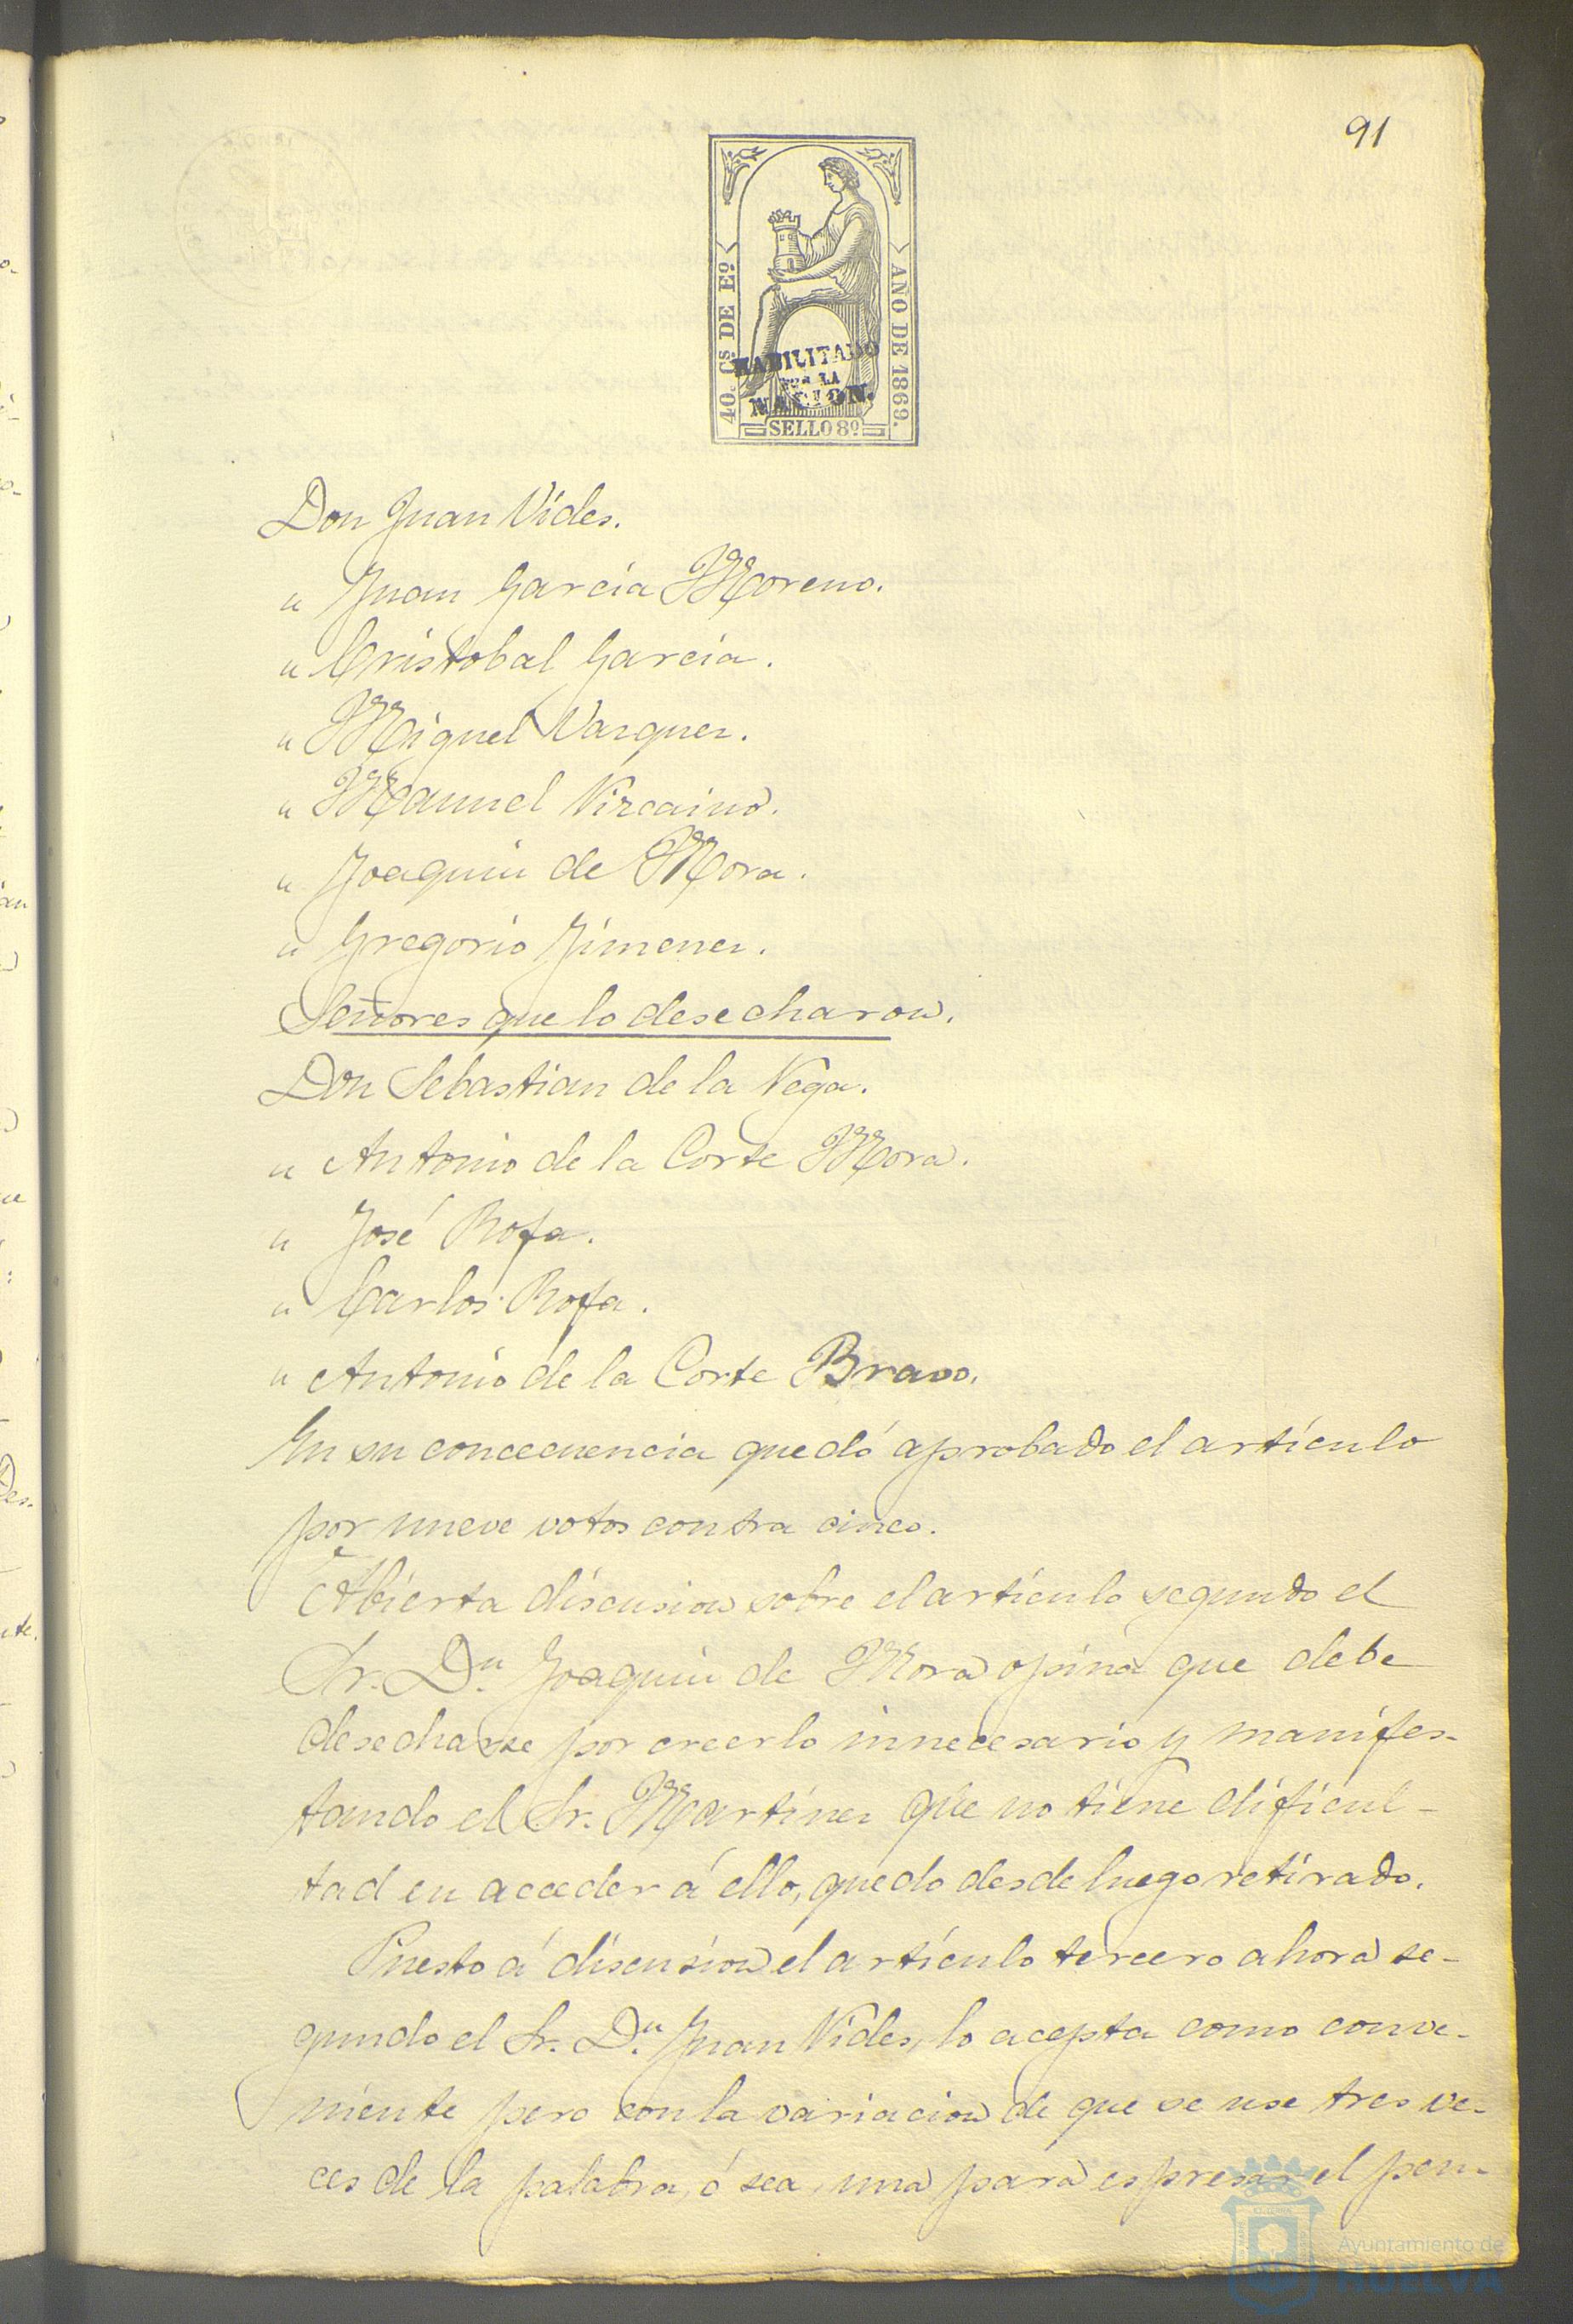 91
40. Cs DE Eº
AÑO DE 1869.
HABILITADO
POR LA
NACION.
SELLO 8º
Don Juan Vides.
" Juan Garcia Moreno.
" Cristobal Garcia.
" Miguel Vazquez.
" Manuel Vizcaino.
" Joaquin de Mora.
" Gregorio Jimenez.
Señores que lo desecharon.
Don Sebastian de la Vega.
" Antonio de la Corte Mora.
" José Rofa.
" Carlos Rofa.
" Antonio de la Corte Bravo.
En su concecuencia quedó aprobado el artículo
por nueve votos contra cinco.
Abierta discusion sobre el artículo segundo el
Sr. Dn. Joaquin de Mora opina que debe
desecharse por creerlo innecesario y manifes-
tando el Sr. Martinez que no tiene dificul-
tad en acceder á ello, quedo desde luego retirado.
Puesto á discusion el artículo tercero ahora se-
gundo el Sr. Dn. Juan Vides, lo acepta como conve-
niente pero con la variacion de que se use tres ve-
ces de la palabra, ó sea, una para espresar el pen-
Ayuntamiento de
HUELVA